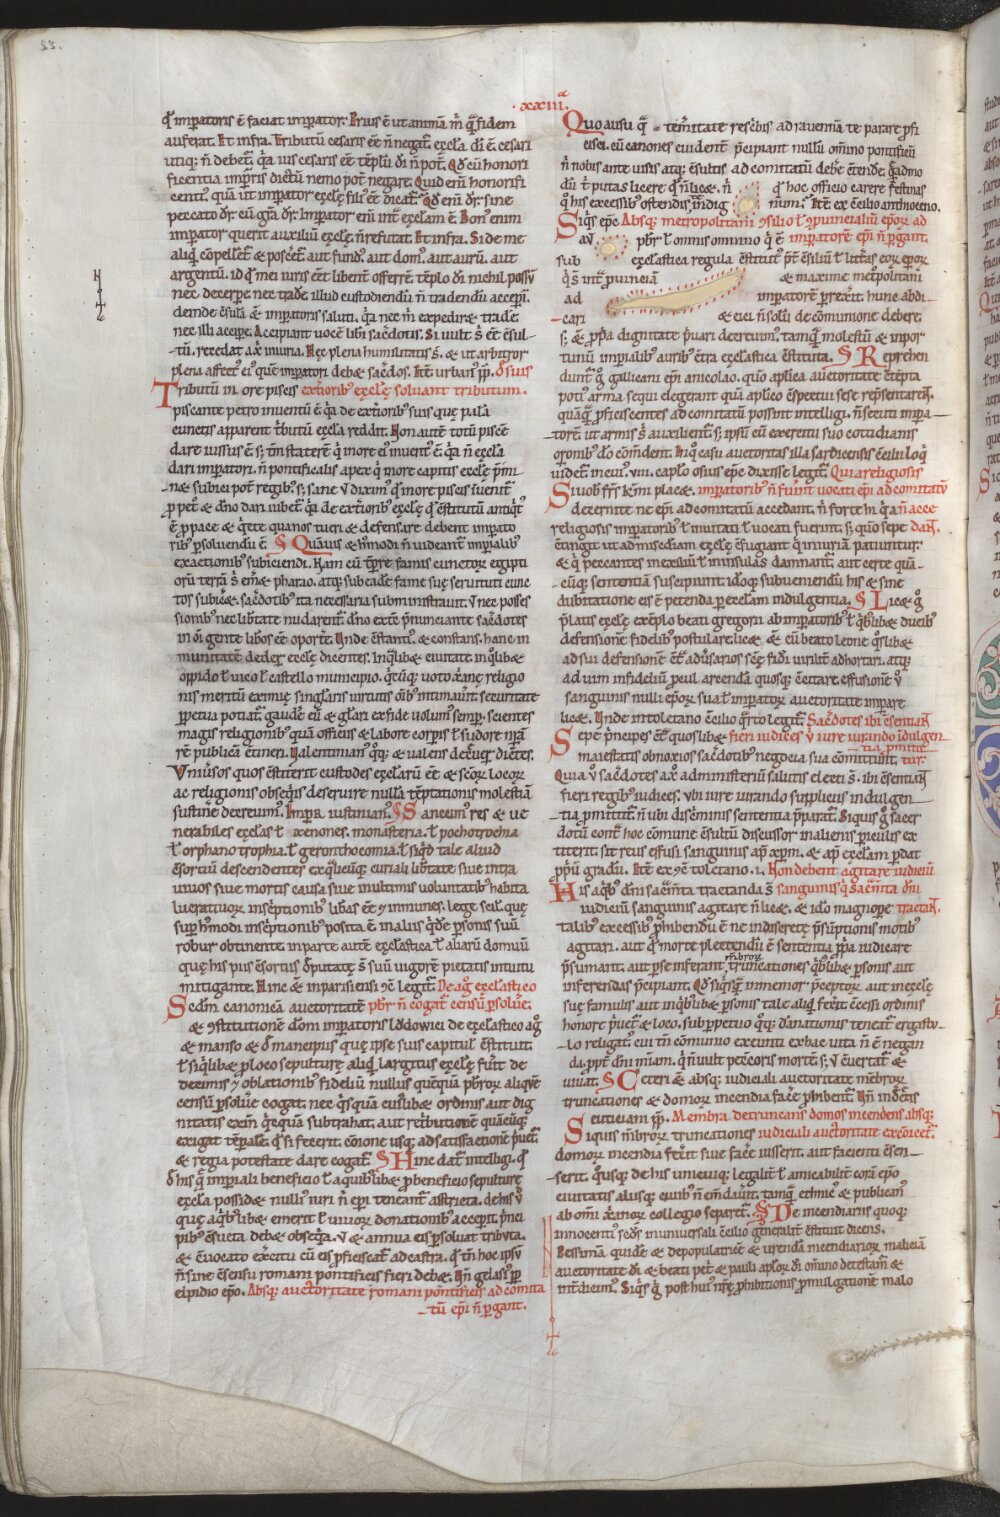 ·xxiii·
q̄ impatoris ē faciat impator. Prius ē ut animā m̄ q̄ fidem
auferat. Et infra. Tributū cesaris eē n̄ negat̄. ęcl̄a dī ē. cesari
utiq; n̄ debet̄. q̄a ius cesaris eē tēplū dī n̄ pot̄. Qđ eū honori
ficentia impr̄is dictū nemo pot̄ negare. Quid eni honorifi
centi9 quā ut impator ęcl̄ę fili9 eē dicat̄. Qđ eni dr̄ sine
peccato dr̄. cū gr̄a dr̄. Impator eni int̄ ęcl̄am ē. Bon9 enim
impator querit auxiliū ęcl̄ę n̄ refutat. Et infra. Si de me
aliq̇d cōpellet̄ & poscet̄ aut fund9. aut dom9. aut aurū. aut
argentū. id q̄d mei iuris eēt libent̄ offerrē. tēplo dī nichil possū
nec decerpe nec trad̄e. illud custodiendū n̄ tradendū accepi.
deinde c̄sulā & impatoris saluti. q̄a nec m̄ expedirę trad̄e
nec illi accipe. Accipiant uocē libi sacdotis. Si uult s̄ ē c̄sul
tū. recedat a x̄ iniuria. Hęc plena humilitatis s̄. & ut arbitror
plena affect9 ei9 quē impatori debę sac̄dos. Itē urban9 pp̄.
Tributū in ore piscis ext̄iorib9 ęcl̄ę soluant tributum.
piscante petro inuentū ē q̄a de ext̄iorib9 suis quę palā
cunctis apparent t̄butū ęcl̄a reddit. Non autē totū piscē
dare iussus ē s; tm̄ staterē q̇ in ore ei9 inuent9 ē q̄a n̄ ęcl̄a
dari impatori. n̄ pontificalis apex q̇ in ore capitis ęcl̄ę p̄mi
nę subici pot̄ regib9. s; sane
ppet̄ & dn̄o dari iubet̄ q̄a de ext̄iorib9 ęcl̄ę q̄d c̄stitutū antiq̇t9
ē p pace & q̇ete qua nos tueri & defensare debent impato
rib9 psoluendū ē. Quāuis & h9modi n̄ uideant̄ impialib9
exactionib9 subiciendi. Nam cū t̄pre famis cunctor̄ egipti
orū terrā s̄ em̄ę pharao. atq; sub eadē fame suę seruituti cunc
tos subice. sac̄dotib9 ita necessaria subministrauit. ut nec posses
sionib9 nec lib̄tate nudarent̄. dn̄o ex tc̄ p̄nunciante sac̄dotes
in om̄i gente lib̄os eē oporte. Unde c̄stanti9. & constans. hanc in
munitatē dederꝫ ęcl̄ę dicentes. In q̇libę ciuitate. in q̇libę
oppido ł uico ł castello municipio. q̇cūq; uoto xanę religio
nis meritū eximię singlaris uirtutis om̄ib9 intimauit. securitate
ppetua potiat̄. gaudē cū & glari ex fide uolum9 semp. scientes
magis religionib9 quā officiis & labore corpis ł sudore nr̄ā
rē publicā c̄tineri. Ualentinian9 q̇q; & ualens decreu̅t dicētes.
Uniu̅sos quos c̄stiterit custodes ęcl̄arū eē & sc̄or̄ locor̄.
ac religionis obseq̇is deseruire nullā tēptationis molestiā
sustin̄e decreuim9. Impr̄ iustinian9. Sancim9 res & ue
nerabiles ęcl̄as ł xenones. monasteria. ł ptochotrophia
ł orphanotrophia. ł geronthocomia. ł siq̇d tale aliud
c̄sortiū descendentes ex q̇licūq; curiali lib̄tate siue intra
uiuos siue mortis causa siue in ultimis uoluntatib9 habita
lucratiuor̄ insc̄ptionib9 lib̄as eē & inmunes. lege scil. quę
sup h9modi insc̄ptionib9 posita ē. in aliis q̇dē psonis suū
robur obtinente. in parte autē ęcl̄astica ł aliarū domuū
quę his piis c̄sortiis dputatę s̄ suū uigorē pietatis intuitu
mitigante. Hinc & in parisiensi 9c̄ legit̄. De agris ęcl̄astico
Sedm̄ canonicā auctoritatē pbr̄ n̄ cogat̄ censū psolue.
& 9stitutionē dom impatoris lodowici de ęcl̄astico agro
& manso & d mancipiis quę ipse suis capitul c̄stituit
ł siq̇libę p loco sepulturę aliq̇d largitus ęcl̄ę fuit̄. de
decimis & oblationib9 fidelium nullus quēquā pbror̄ aliquē
censū psolue cogat. nec q̇sq̄ cui9libę ordinis aut dig
nitatis exin q̇cquā subtrahat. aut ret̄butionē quācūq;
exigat tēpalē. q̄d si fecerit. cōione usq; ad satisfactionē p̄uet̄.
& regia potestate dare cogat̄. Hinc dat̄ intelligi. q̄d
d his q̄ impiali beneficio ł a quib9libę pbeneficio sepulturę
ęcl̄a possidę nulli9 iuri n̄ epi teneant̄ astricta. de his ū
quę a q̇b9libę emerit ł uiuor̄ donationib9 accepit. p̄nci
pib9 c̄sueta debę obseq̇a. ut & annua eis psoluat tributa.
& c̄uocato ex̄citu cū eis pficiscat̄ ad castra. q̄d tm̄ hoc ipsū
n̄ sine c̄sensu romani pontificis fieri debę. Un̄ gelasi9 pp̄
elpidio epo. Absq; auctoritate romani pontificis ad comita
tū epi n̄ pgant.
Quo ausu q̄ temitate rescibis ad rauennā te parare pfi
cisci. cū canones euident̄ p̄cipiant nullū om̄ino pontificū
n̄ nobis ante uisis atq; c̄sultis ad comitatū debe c̄tende. q̇d mo
dū t̄ putas licere q̄d n̄ licę. n̄ q̇ hoc officio carere festinas
q̇ his excessib9 ostendis indig num. Itē ex c̄cilio anthioceno.
Siq̇s epc Absq; metropolitani 9silio ł 9prouincialiū epor̄ ad
aū pbr̄ ł omnis omnino q̇ ē imperatorē epi n̄ pgant.
sub ęcl̄astica regula c̄stitut9 p̄t c̄siliū ł litt̄as eor̄ epor̄
q̇ s̄ int̄ puinciā & maxime metropolitani
ad imperatorē prexit. hunc abdi
cari & eici n̄ solū de cōmunione debere
s; & ppa dignitate puari decreuim9. tamq̄ molestū & inpor
tunū impialib9 aurib9 c̄tra ęcl̄astica c̄stituta. Reprehen
dunt̄ g̊ gallicani epi a nicolao. quo aplica auctoritate c̄tēpta
poti9 arma sequi elegerant quā aplico c̄spectui sese rep̄sentare.
quāq̄ pficiscentes ad comitatū possint intelligi. n̄ secuti impa
torē. ut armis s̄ auxilient̄. s; ipsū cū exercitu suo cottidianis
orōnib9 dō cōmdent. In q̇ casu auctoritas illa sardicensis c̄cilii loq̇
uidet̄. in cui9 .viii. caplo osius epc dixisse legit̄. Qui a religiosis
Si uob̄ fr̄s kmi placę. imperatorib9 n̄ fuint uocati epi ad comitatū
decernite ne epi ad comitatū accedant. n̄ forte hi q̇ a n̄ acce
religiosis imperatorib9 ł inuitati ł uocati fuerint. s; quo sepe dant.
c̄tingit ut ad misc̄diam ęcl̄ę c̄fugiant q̇ iniuriā patiuntur
& q̇ peccantes in exiliū ł in insulas dānant̄. aut certe quā
cūq; sententiā suscipiunt. idcoq; subueniendū his & sine
dubitatione eis ē petenda p ęcl̄iam indulgentia. Licę g̊
platis ęcl̄ę exēplo beati gregorii ab impatorib9 ł q̇b9libę ducib9
defensionē fidelib9 postulare. licę & cū beato leone q̇slibę
ad sui defensionē c̄t̄ adu̅sarios sc̄ę fidei uiriliter adhortari. atq;
ad uim infidelium pcul arcendā quosq; c̄citare. effusionē ū
sanguinis nulli epor̄ sua ł impator̄ auctoritate impare
licę. Unde in toletano c̄cilio q̇rto legit̄. Sac̄dotes ibi c̄sentiant
Sepe p̄ncipes c̄t̄ quoslibę fieri iudices ubi iure iurando idulgen
tia p̄mittit̄.
maiestatis obnoxios sac̄dotib9 negocia sua cōmittunt̄.
Quia ū sac̄dotes a xō ad ministeriū salutis electi s̄. ibi c̄sentiant
fieri regib9 iudices. ubi iure iurando supplicii indulgen
tia pmittit̄. n̄ ubi disc̄minis sententia p̄parat̄. Siquis g̊ sacer
dotū cont̄ hoc cōmune c̄sultū discussor in alienis p̄iculis ex
titerit. sit reus effusi sanguinis ap xpm. & ap ęcl̄iam pdat
ppriū gradū. Itē ex 9c̄ toletano .xi. Non debent agitare iudiciū
His a q̇b9 dn̄i sac̄m̄ta tractanda s̄ sanguinis q̇ sac̄m̄ta dn̄i
iudiciū sanguinis agitare n̄ licę. & ido magnope tractant.
talib9 excessib9 phibendū ē ne indiscretę p̄sūptionis motib9
agitati. aut q̇d morte plectendū ē sententia ppa iudicare
p̄sumant. aut p se inferant m̄bror̄ truncationes q̇b9libę psonis aut
inferendas p̄cipiant. Qđ siq̇sq̄ inmemor p̄ceptor̄ aut in ęcl̄ę
suę famulis aut in q̇b9libę psonis tale aliq̇d fecit. c̄cessi ordinis
honore p̄uet̄ & loco. sub perpetuo q̇q; dānationis teneat̄ ergastu
lo religat9. cui tn̄ cōmunio exeunti ex hac uita n̄ ē negan
da. ppt̄ dn̄i mīam. q̇ n̄ uult peccatoris mortē s; ut c̄uertat̄ &
uiuat. Ceteri & absq; iudiciali auctoritate mēbror̄
truncationes & domor̄ incendia facē phibent̄. Un̄
Eutician9 pp̄. Membra detruncans domos incendens absq;
Siquis mbror̄ truncationes iudiciali auctoritate excōicet̄.
domor̄ incendia fecit siue facē iusserit. aut facienti c̄sen
serit. q̇usq; de his unicuiq; legalit̄ ł amicabilit̄ corā epo
ciuitatis aliisq; ciuib9 n̄ emdauit. tamq̄ ethnic9 & publican9
ab om̄i xanor̄ collegio separet̄. De incendiariis quoq;
innocenti9 sc̄ds in uniuersali c̄cilio generalit̄ c̄stituit dicens.
Pessimā quidē & depopulatricē & horrendā incendiarior̄ maliciā
auctoritate dī & beati petri & pauli aplor̄ dī om̄ino detestam̄ &
int̄dicim9. Siq̇s g̊ post hui9 nr̄ę phibitionis pmulgationē malo